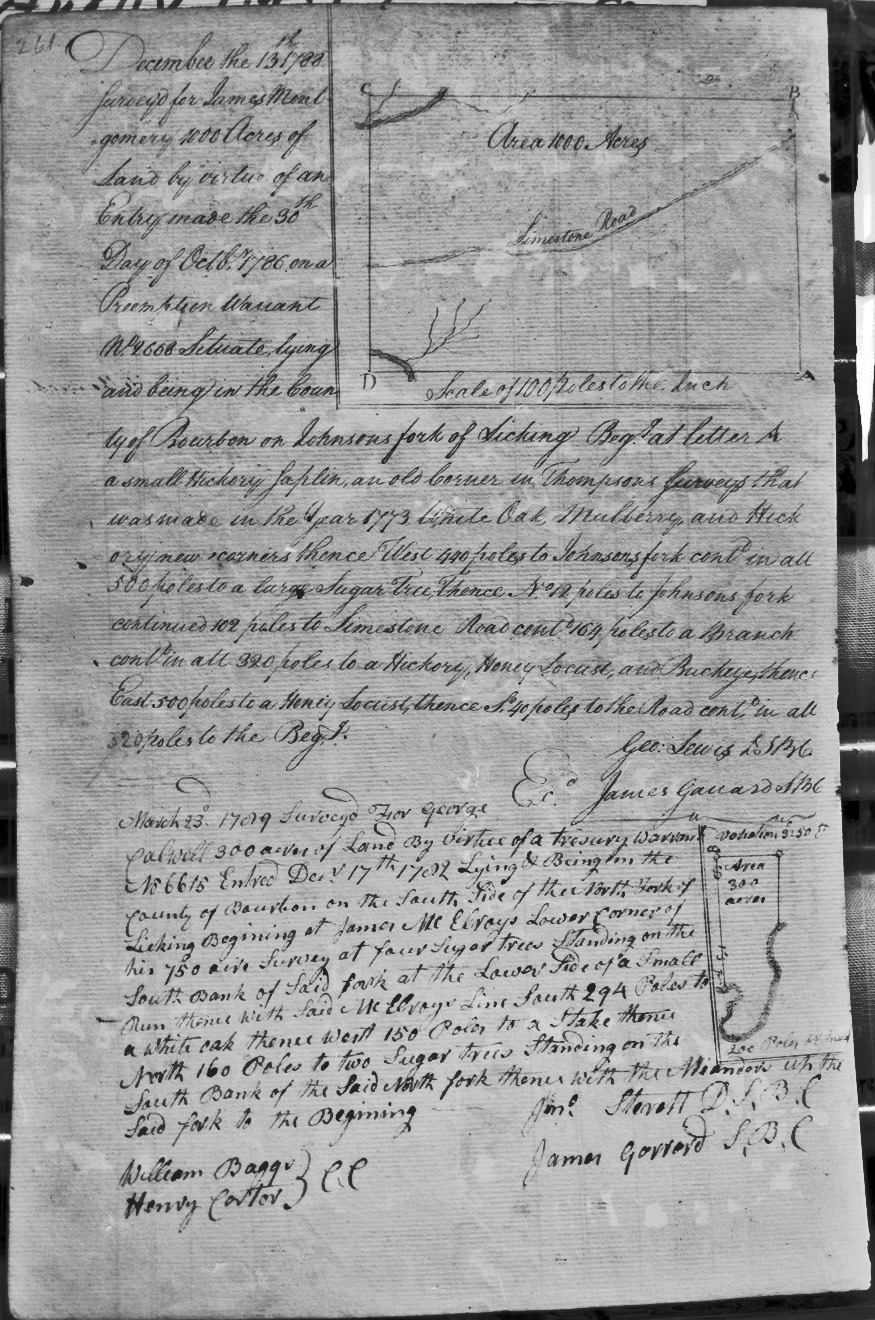 261
December the 13th 1788
Surveyd for James Mont
gomery 1000 Acres of
Land by virtue of an
Entry made the 30th
Day of Octbr. 1786 on a
Preemption Warrant
No. 2668 Situate, lying
and being in the Coun
C
B
Area 1000 Acres
Limestone Road
D
A
Scale of 100 poles to the Inch
ty of Bourbon on Johnsons fork of Licking Beg.g at letter A
a small Hickory Saplin, an old Corner in Thompsons Surveys that
was made in the Year 1773 White Oak, Mulberry, and Hick
ory new corners thence West 440 poles to Johnsons fork contd. in all
500 poles to a large Sugar Tree, thence No. 12 poles to Johnsons fork
continued 102 poles to Limestone Road contd. 164 poles to a Branch
contd. in all 320 poles to a Hickory, Honey Locust, and Buckeye, thence
East 500 poles to a Honey Locust, thence So. 40 poles to the Road contd. in all
320 poles to the Beg.g.
Geo: Lewis DSBC
Exd. James Garrard SBC
March 23d. 1789 Surveyd For George
Calwell 300 acres of Land By Virtue of a treasury Warrant
No 6615 Entred Decr 17th 1782 Lying & Being in the
County of Bourbon on the South Side of the North fork of
Licking Begining at James Mc Elroys Lower Corner of
his 750 acre Survey at four Sugar trees Standing on the
South Bank of Said fork at the Lower Side of a Small
Run thence with Said Mc Elroys Line South 294 Poles to
a White oak thence West 150 Poles to a Stake thence
North 160 Poles to two Sugar trees Standing on the
South Bank of the Said North fork thence with the Meanders up the
Said fork to the Begining
Variation 3:50 E
Area
300
acres
200 Poles
Jno. Sterett D.S.B.C
James Garrard S.B.C
William Baggs
Henry Cortor } C.C